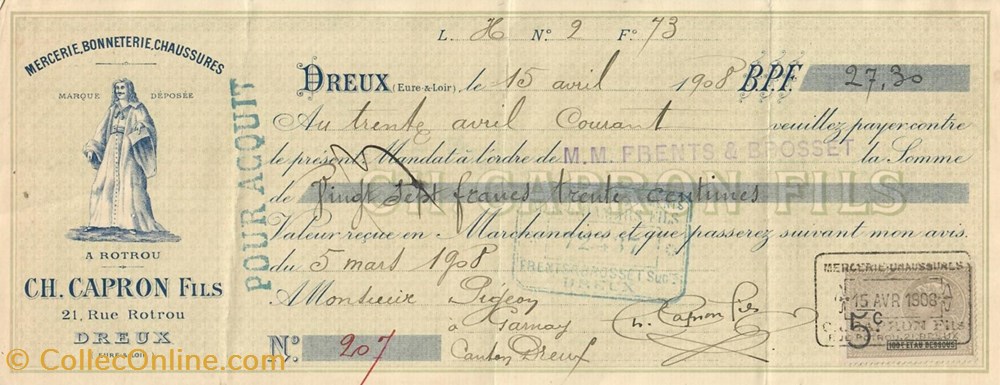 L. H N.º 2 F.º 73
MERCERIE, BONNETERIE, CHAUSSURES
MARQUE DÉPOSÉE
A ROTROU
CH. CAPRON FILS
21, Rue Rotrou
DREUX
EURE-&-LOIR
POUR ACQUIT
DREUX (Eure-&-Loir), le 15 avril 1908 B.P.F. 27,30
Au trente avril Courant veuillez payer contre
le présent Mandat à l'ordre de M.M. FRENTS & BROSSET la Somme
de Vingt sept francs trente centimes
CH CAPRON FILS
Valeur reçue en Marchandises et que passerez suivant mon avis.
du 5 mars 1908
A Monsieur Pigeon
à Garnay
Canton Dreux
N.º 207
FRENTS & BROSSET Sucrs
DREUX
Ch. Capron fils
MERCERIE-CHAUSSURES
15 AVR 1908
5c
C. CAPRON FILS
100f ET AU DESSOUS
CollecOnline.com